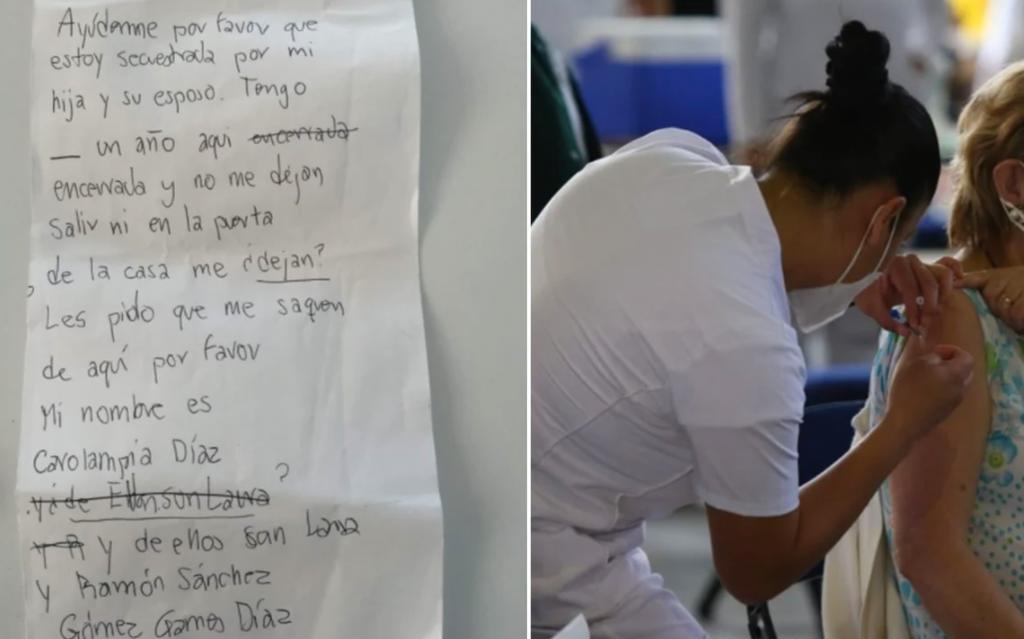 Ayúdenme por favor que
estoy secuestrada por mi
hija y su esposo. Tengo
un año aqui encerrada
encerrada y no me dejan
salir ni en la puerta
de la casa me ¿dejan?
Les pido que me saquen
de aquí por favor
Mi nombre es
Carolampia Díaz
?
y de ellos san
y Ramón Sánchez
Gómez Gamos Díaz